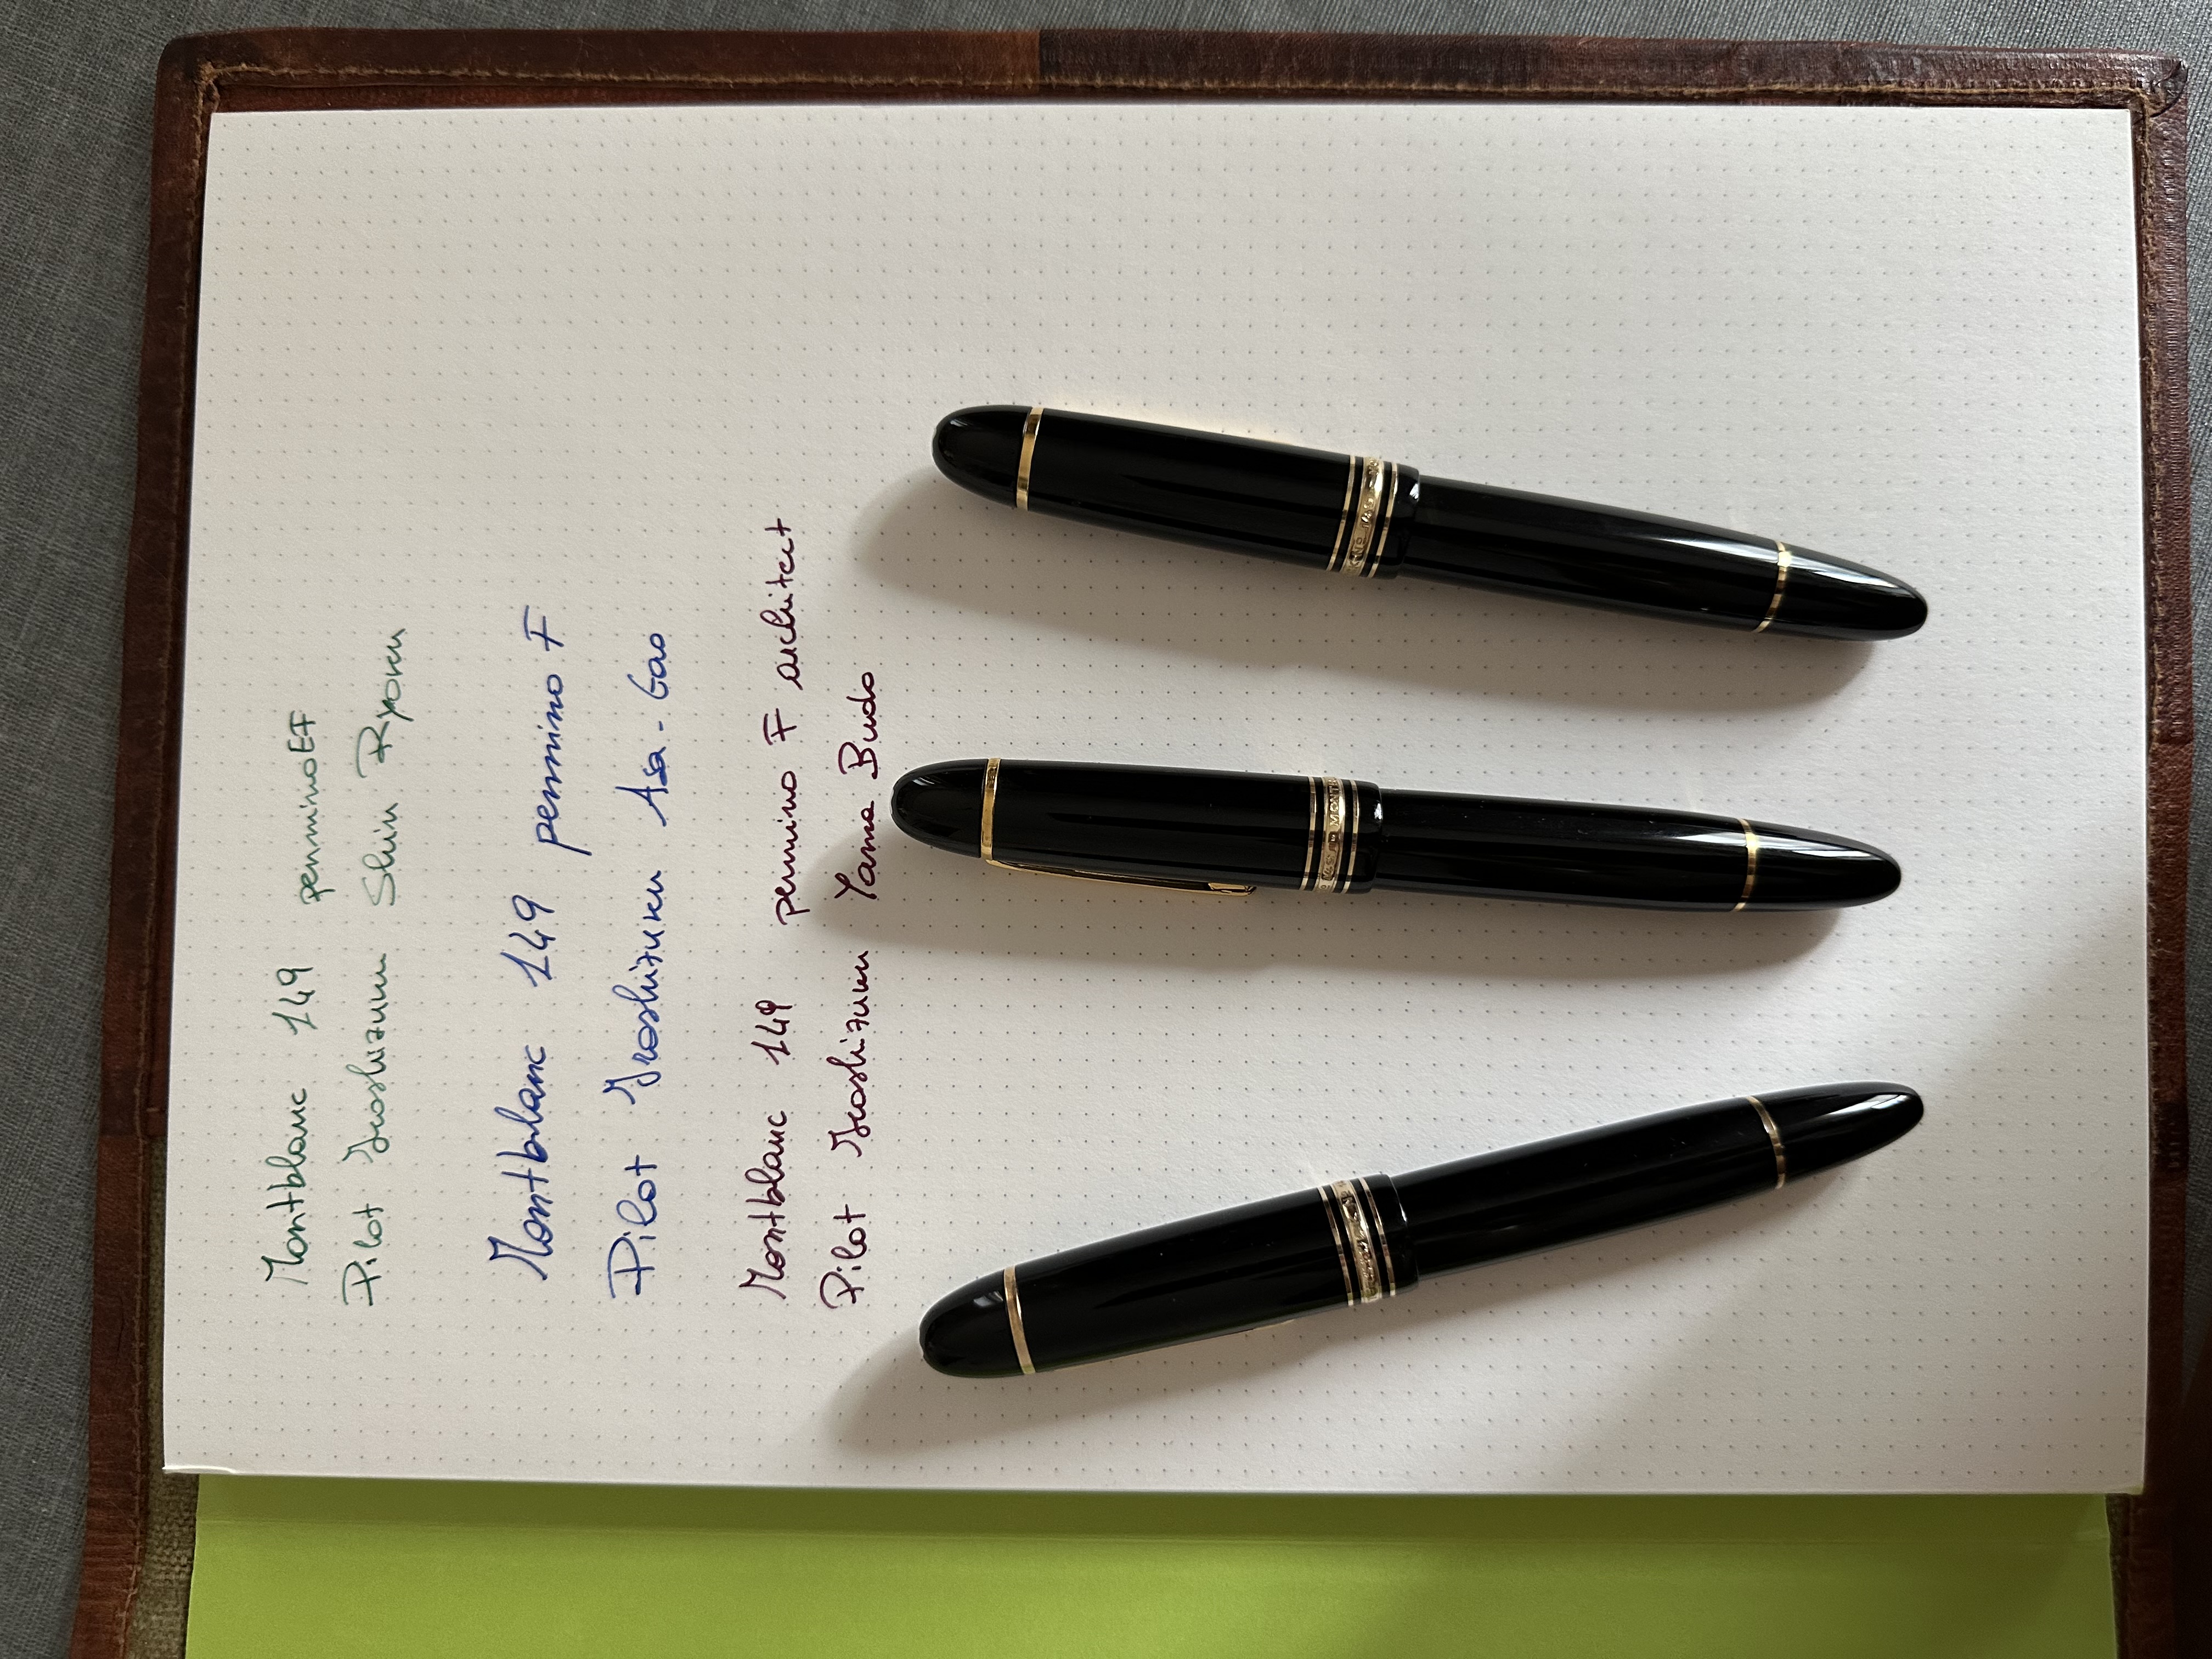 Montblanc 149 pennino EF
Pilot Iroshizuku Shin Ryoku
Montblanc 149 pennino F
Pilot Iroshizuku Asa-Gao
Montblanc 149 pennino F architect
Pilot Iroshizuku Yama Budo
MONT